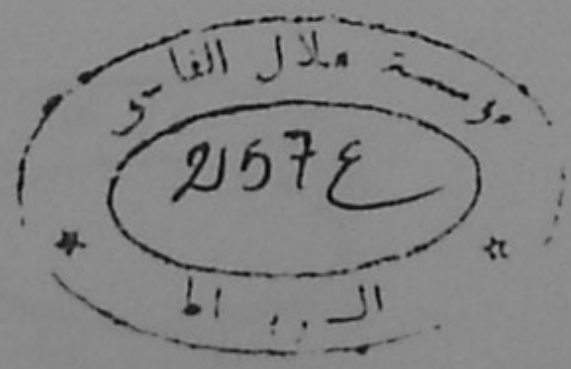 مؤسسة علال الفاسي
2157ع
الرباط